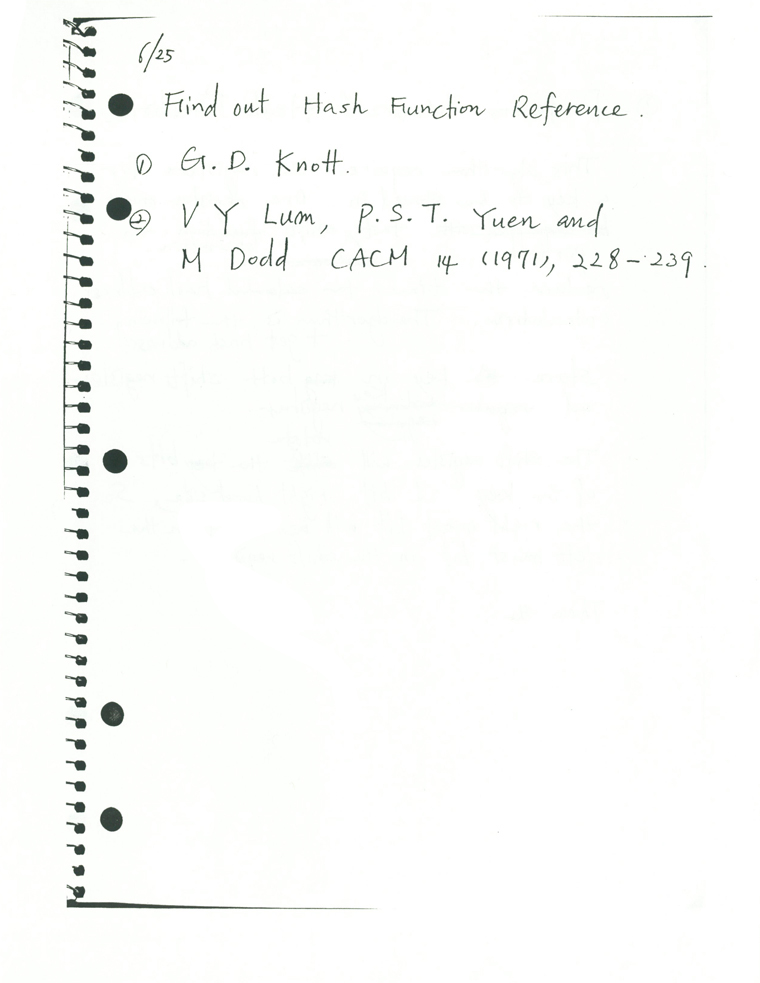 6/25
Find out Hash Function Reference.
① G. D. Knott.
② V Y Lum, P. S. T. Yuen and
M Dodd CACM 14 (1971), 228-239.